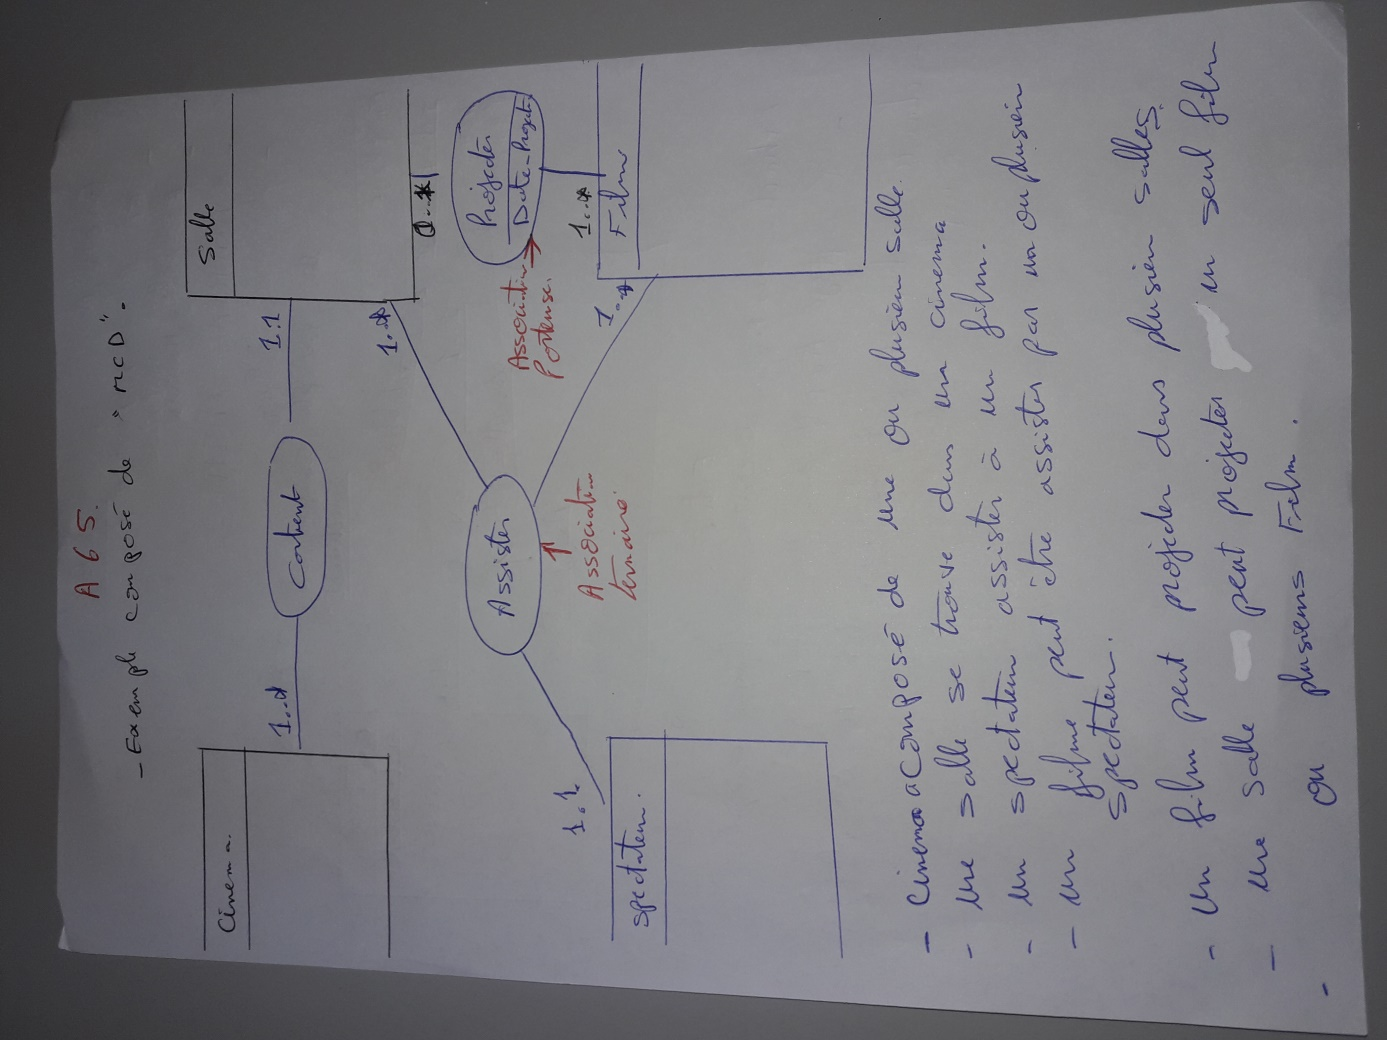 A 65.
- Exemple composé de "MCD".
Cinema.
1..*
Contient
1.1
Salle
1..*
0..*
Projecter
Date-Projet
Association
Porteuse.
1..*
Film
1..*
Assister
Association
ternaire.
1.1.
Spectateur.
- Cinema a composé de une ou plusieur salle.
- une salle se trouve dans un cinema
- un spectateur assister à un film.
- un filme peut être assister par un ou plusieur
spectateur.
- un film peut projecter dans plusieur salles.
- une salle peut projecter un seul film
- ou plusieurs Film.